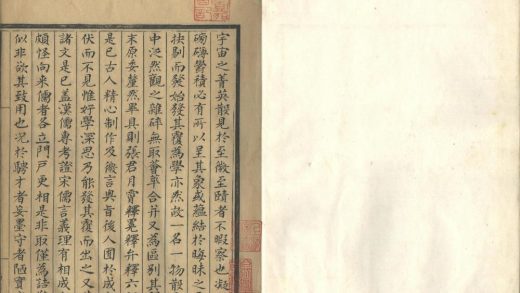 宇宙之菁英散見於至微至賾者不暇察也凝
磅礴鬱積必有所以呈其象或蘊結於晦昧之
抉剔而發始發其覆為學亦然故一名一物散
中泛然觀之雜碎無取薈萃合并又為區別其
末原委釐然畢具則張君月霄釋冕釋弁釋六
是已古人精心制作及微言奥旨後人囿於成
伏而不見惟好學深思乃能發其覆而出之又
諸文是已盖漢儒專考證宋儒言義理有相成
頗怪向来儒者各立門戶更相是非取僅為詁
似非欲其致用也况於騁才者妄墨守者陋實